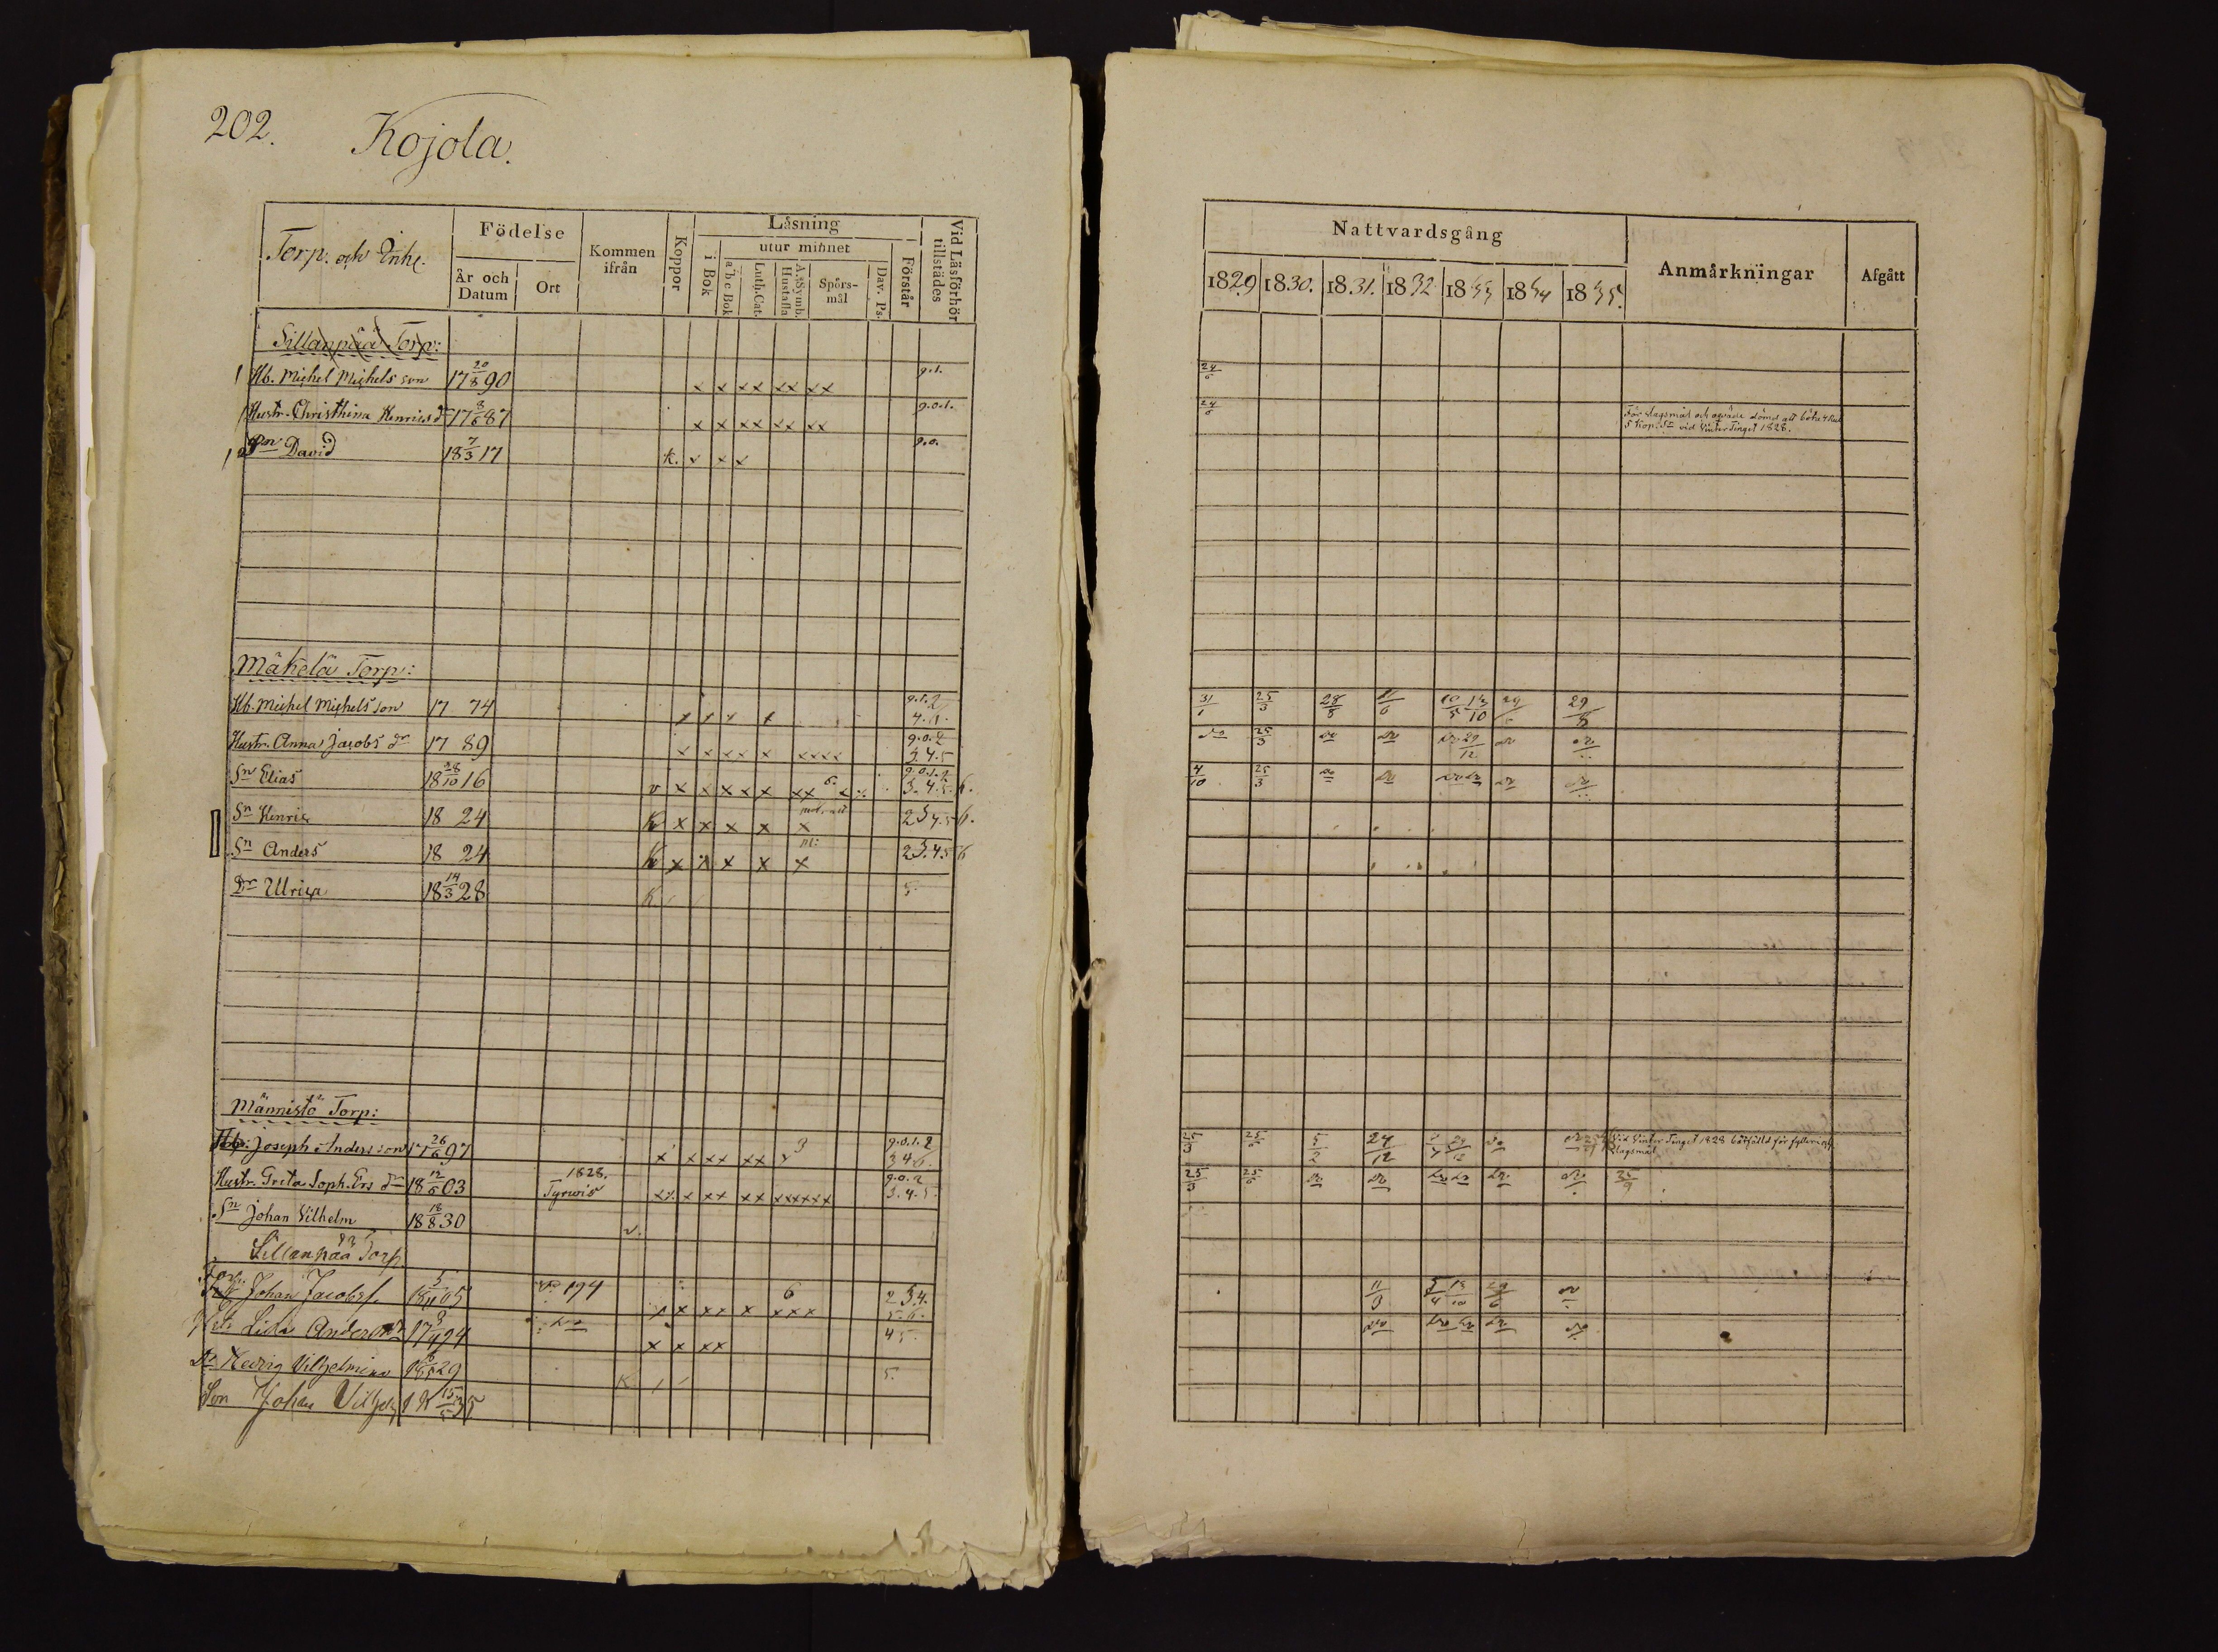 202. Kojola.
Torp. och Inhe.
Födelse
År och Datum
Ort
Kommen ifrån
Koppor
Låsning
i Bok
utur minnet
a b c Bok
Luth. Cat.
A. Symb. Hustafla
Spörs-mål
Dav. Ps.
Förstår
Vid Låsförhör tillstädes
Sillanpää Torp:
Hb. Michel Michels son 17 20/8 90 x x xx xx xx 9.1.
Hustr. Christhina Henrics dr 17 8/6 87 x x xx xx xx 9.0.1.
Sn David 18 7/3 17 K. v x x 9.0.
Mäkelä Torp:
Hb. Michel Michels son 17 74 x x x x 9.1.2 4.
Hustr. Anna Jacobs dr 17 89 x x xx x xxxx 9.0.2 3.4.5
Sn Elias 18 28/10 16 v x x x x x xx 6. 9.0.1.2 3.4.5. 6.
Sn Henric 18 24 K x x x x x 2 3 4.5 6.
Sn Anders 18 24 K x x x x x 2 3.4 5 6
Dr Ulrica 18 14/3 28 K 5.
Männistö Torp:
Hb: Joseph Anders son 17 26/6 97 x x xx xx x 3 9.0.1.2 3 4 6.
Hustr. Greta Soph. Ers dr 18 12/6 03 1828. Tyrwis x x xx xx xxxxxx 9.0.2 3.4.5.
Sn Johan Vilhelm 18 18/8 30 v.
Sillanpää Torp
Torp. Johan Jacobss. 18 5/11 05 194 x x xx x xxx 6 2 3.4. 5.6.
Lisa Anders dr 17 94 x x xx 4 5.
Dr Hedvig Vilhelmina 29 K 5.
Son Johan Vilh 18 15/5 35
Nattvardsgång
1829 1830. 1831. 1832 1833 1834 1835.
Anmårkningar
Afgått
24/6
24/6 För slagsmål och oqväde dömd att böta 4 Rub 5 Kop. Sr vid Vinter Tinget 1828.
31/1 25/3 28/8 11/6 10/5 13/10 29 29
do 25/3 do do do 29/12 do do
4/10 25/3 do do do do do do
25/3 25/6 5/2 24/12 29/12 do do Vid Vinter Tinget 1828 bötfälld för fylleri och slagsmål
25/3 25/6 do do do do do do 25/9
11/3 5/4 13/10 29/6 do
do do do do do